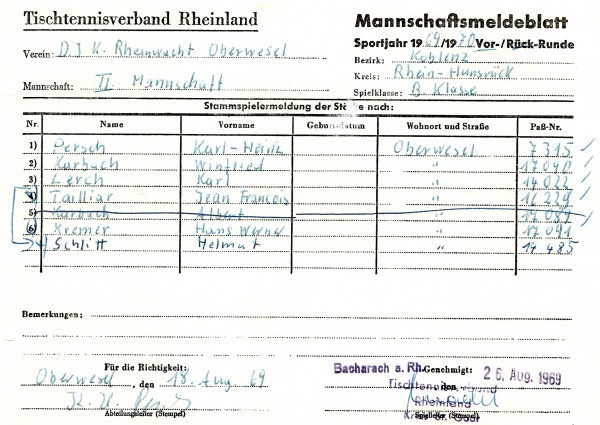 Tischtennisverband Rheinland
Mannschaftsmeldeblatt
Sportjahr 1969/1970 Vor-/Rück-Runde
Verein: D.J.K. Rheinwacht Oberwesel
Bezirk: Koblenz
Kreis: Rhein-Hunsrück
Mannschaft: II Mannschaft
Spielklasse: B. Klasse
Stammspielermeldung der Stärke nach:
Nr. Name Vorname Geburtsdatum Wohnort und Straße Paß-Nr.
1) Persch Karl-Heinz Oberwesel 7315
2) Karbach Winfried " 17040
3) Lerch Karl " 14022
4) Tailliar Jean Francois " 16229
5) Karbach Albert " 17089
6) Kremer Hans Werner " 17091
Schlitt Helmut " 14485
Bemerkungen:
Für die Richtigkeit:
Oberwesel, den 18. Aug 69
Abteilungsleiter (Stempel)
Bacharach a. Rh. Genehmigt: 26. Aug. 1969
den
Tischtennisverband
Rheinland
Kreis St. Goar
Spielleiter (Stempel)